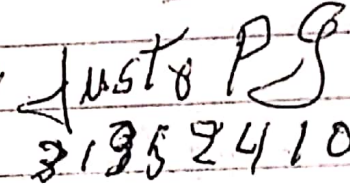 Justo P G
31352410